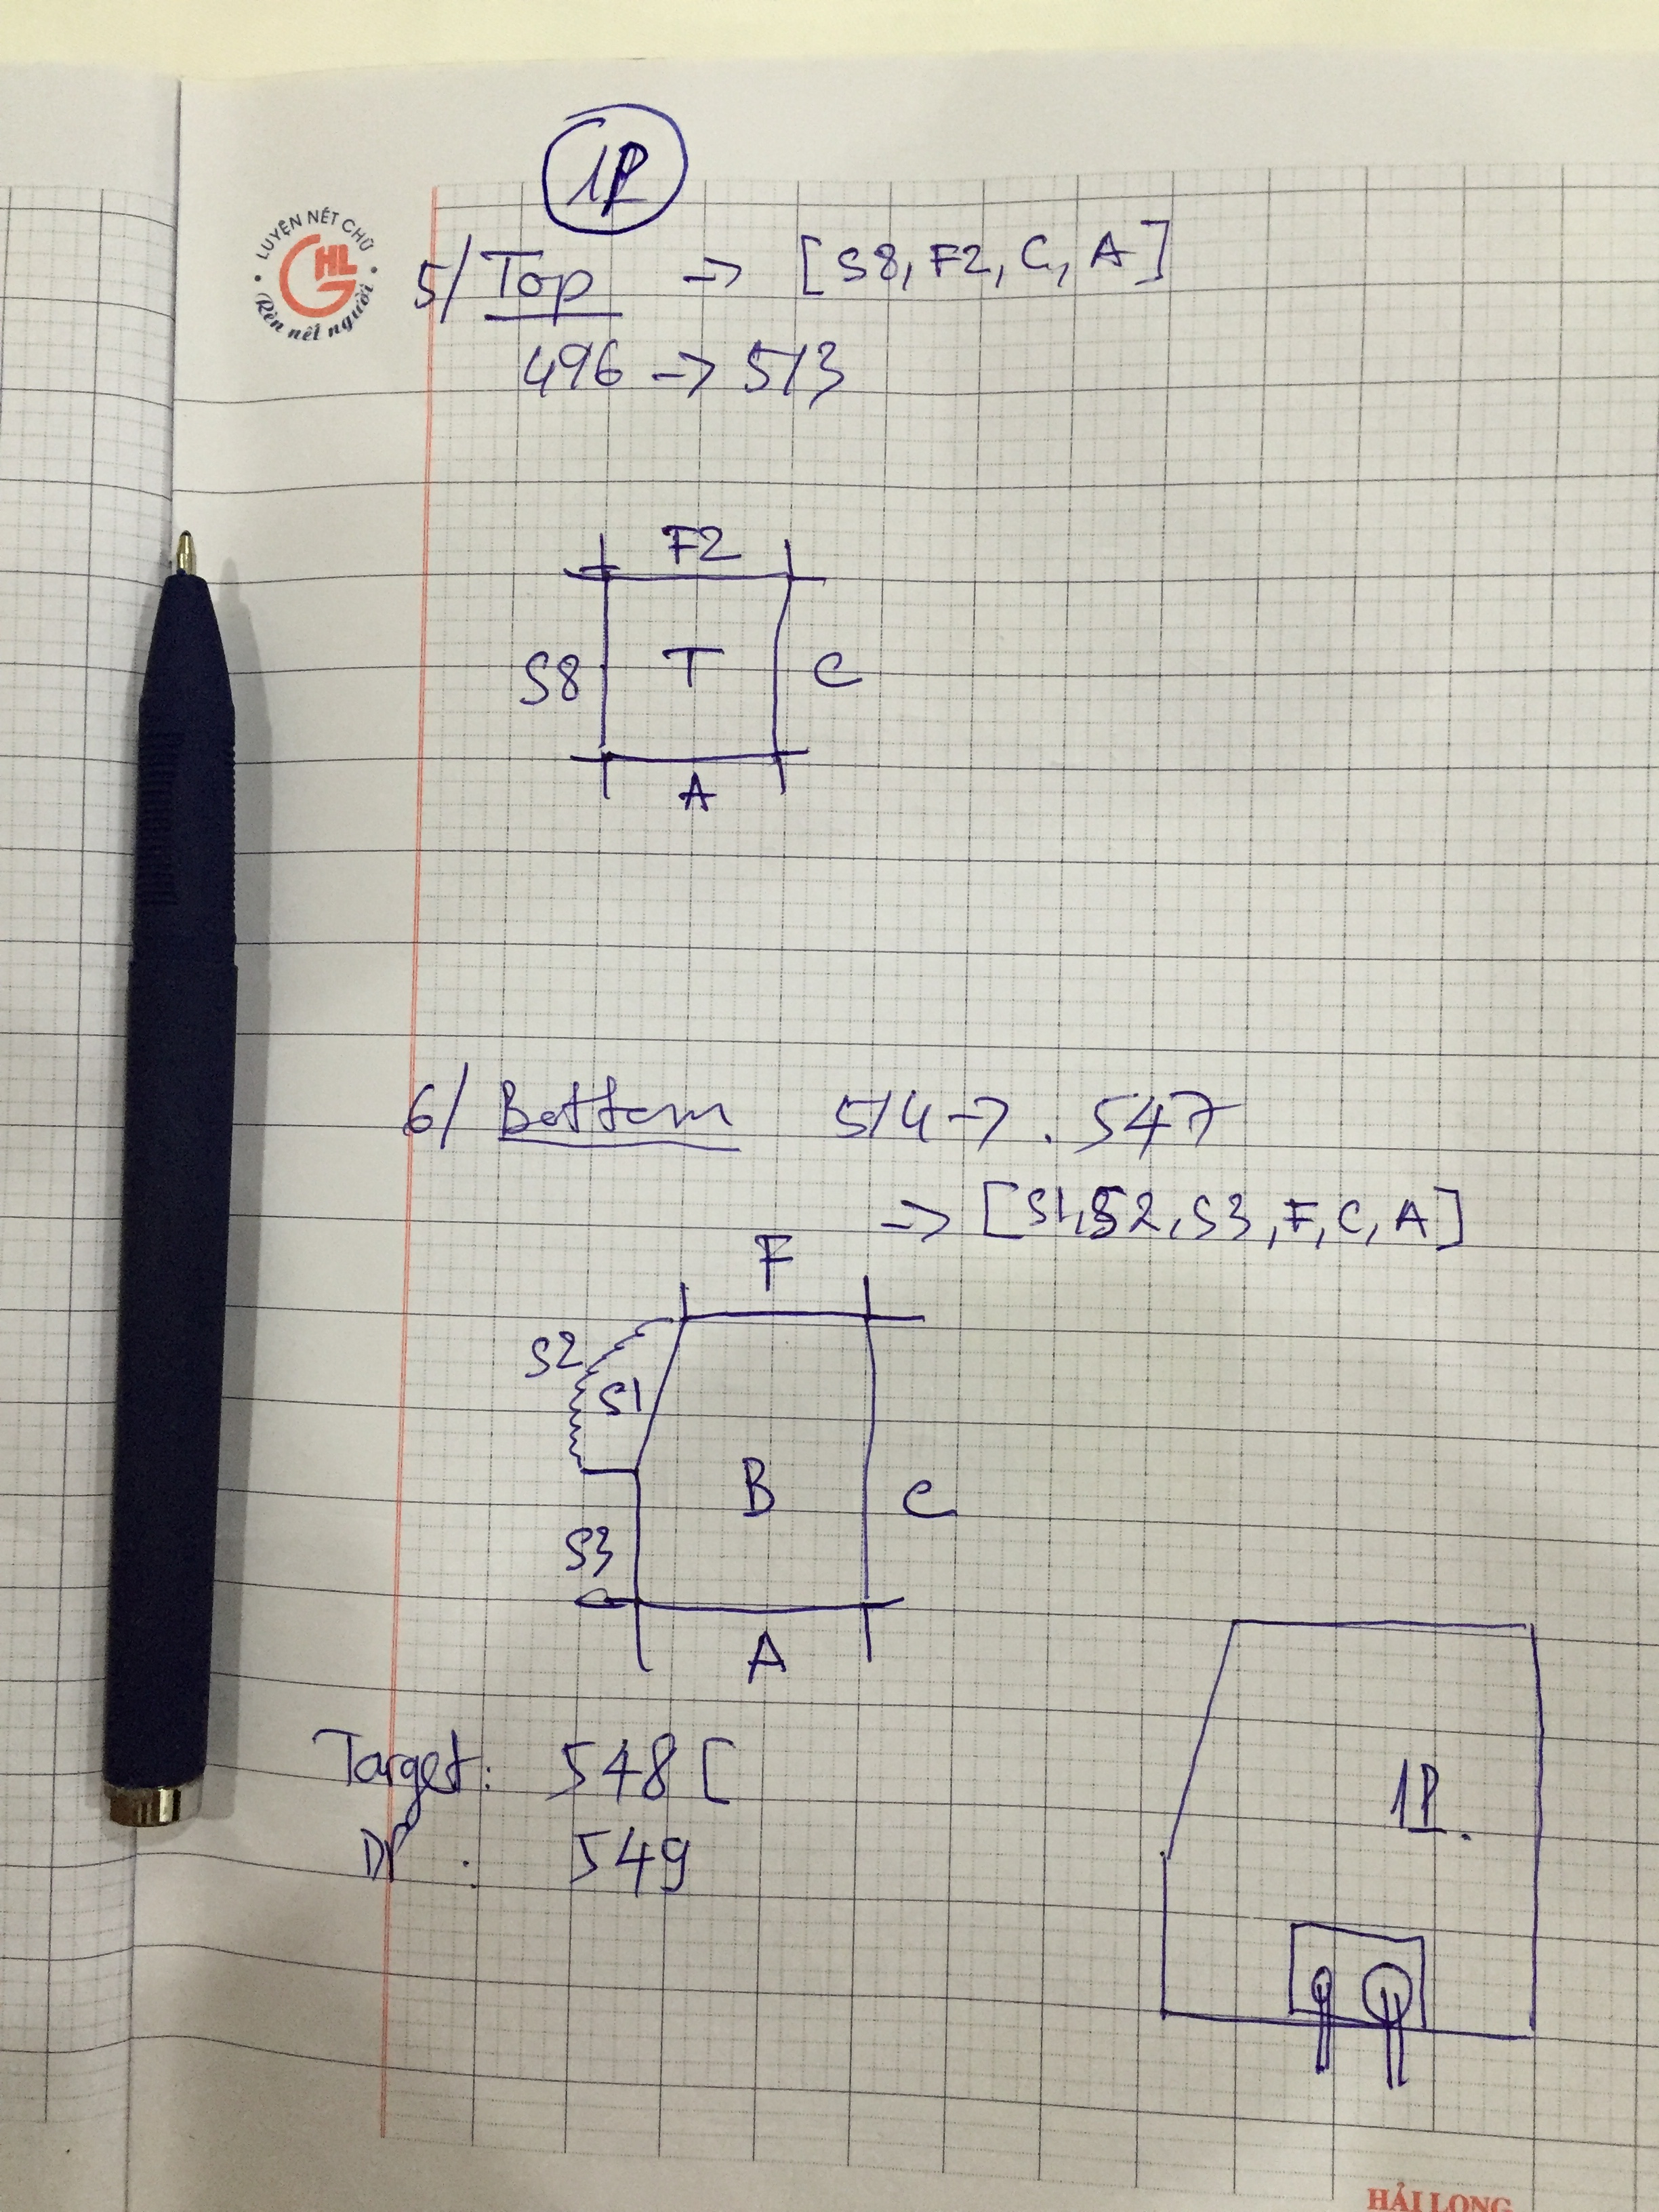 1P
LUYỆN NÉT CHỮ
GHL
Rèn nết người
5/ Top -> [S8, F2, C, A]
496 -> 513
F2
S8 T C
A
6/ Bottom 514 -> . 547
-> [S1, S2, S3, F, C, A]
F
S2
S1
B C
S3
A
Target: 548 [
1P.
DP : 549
HẢI LONG